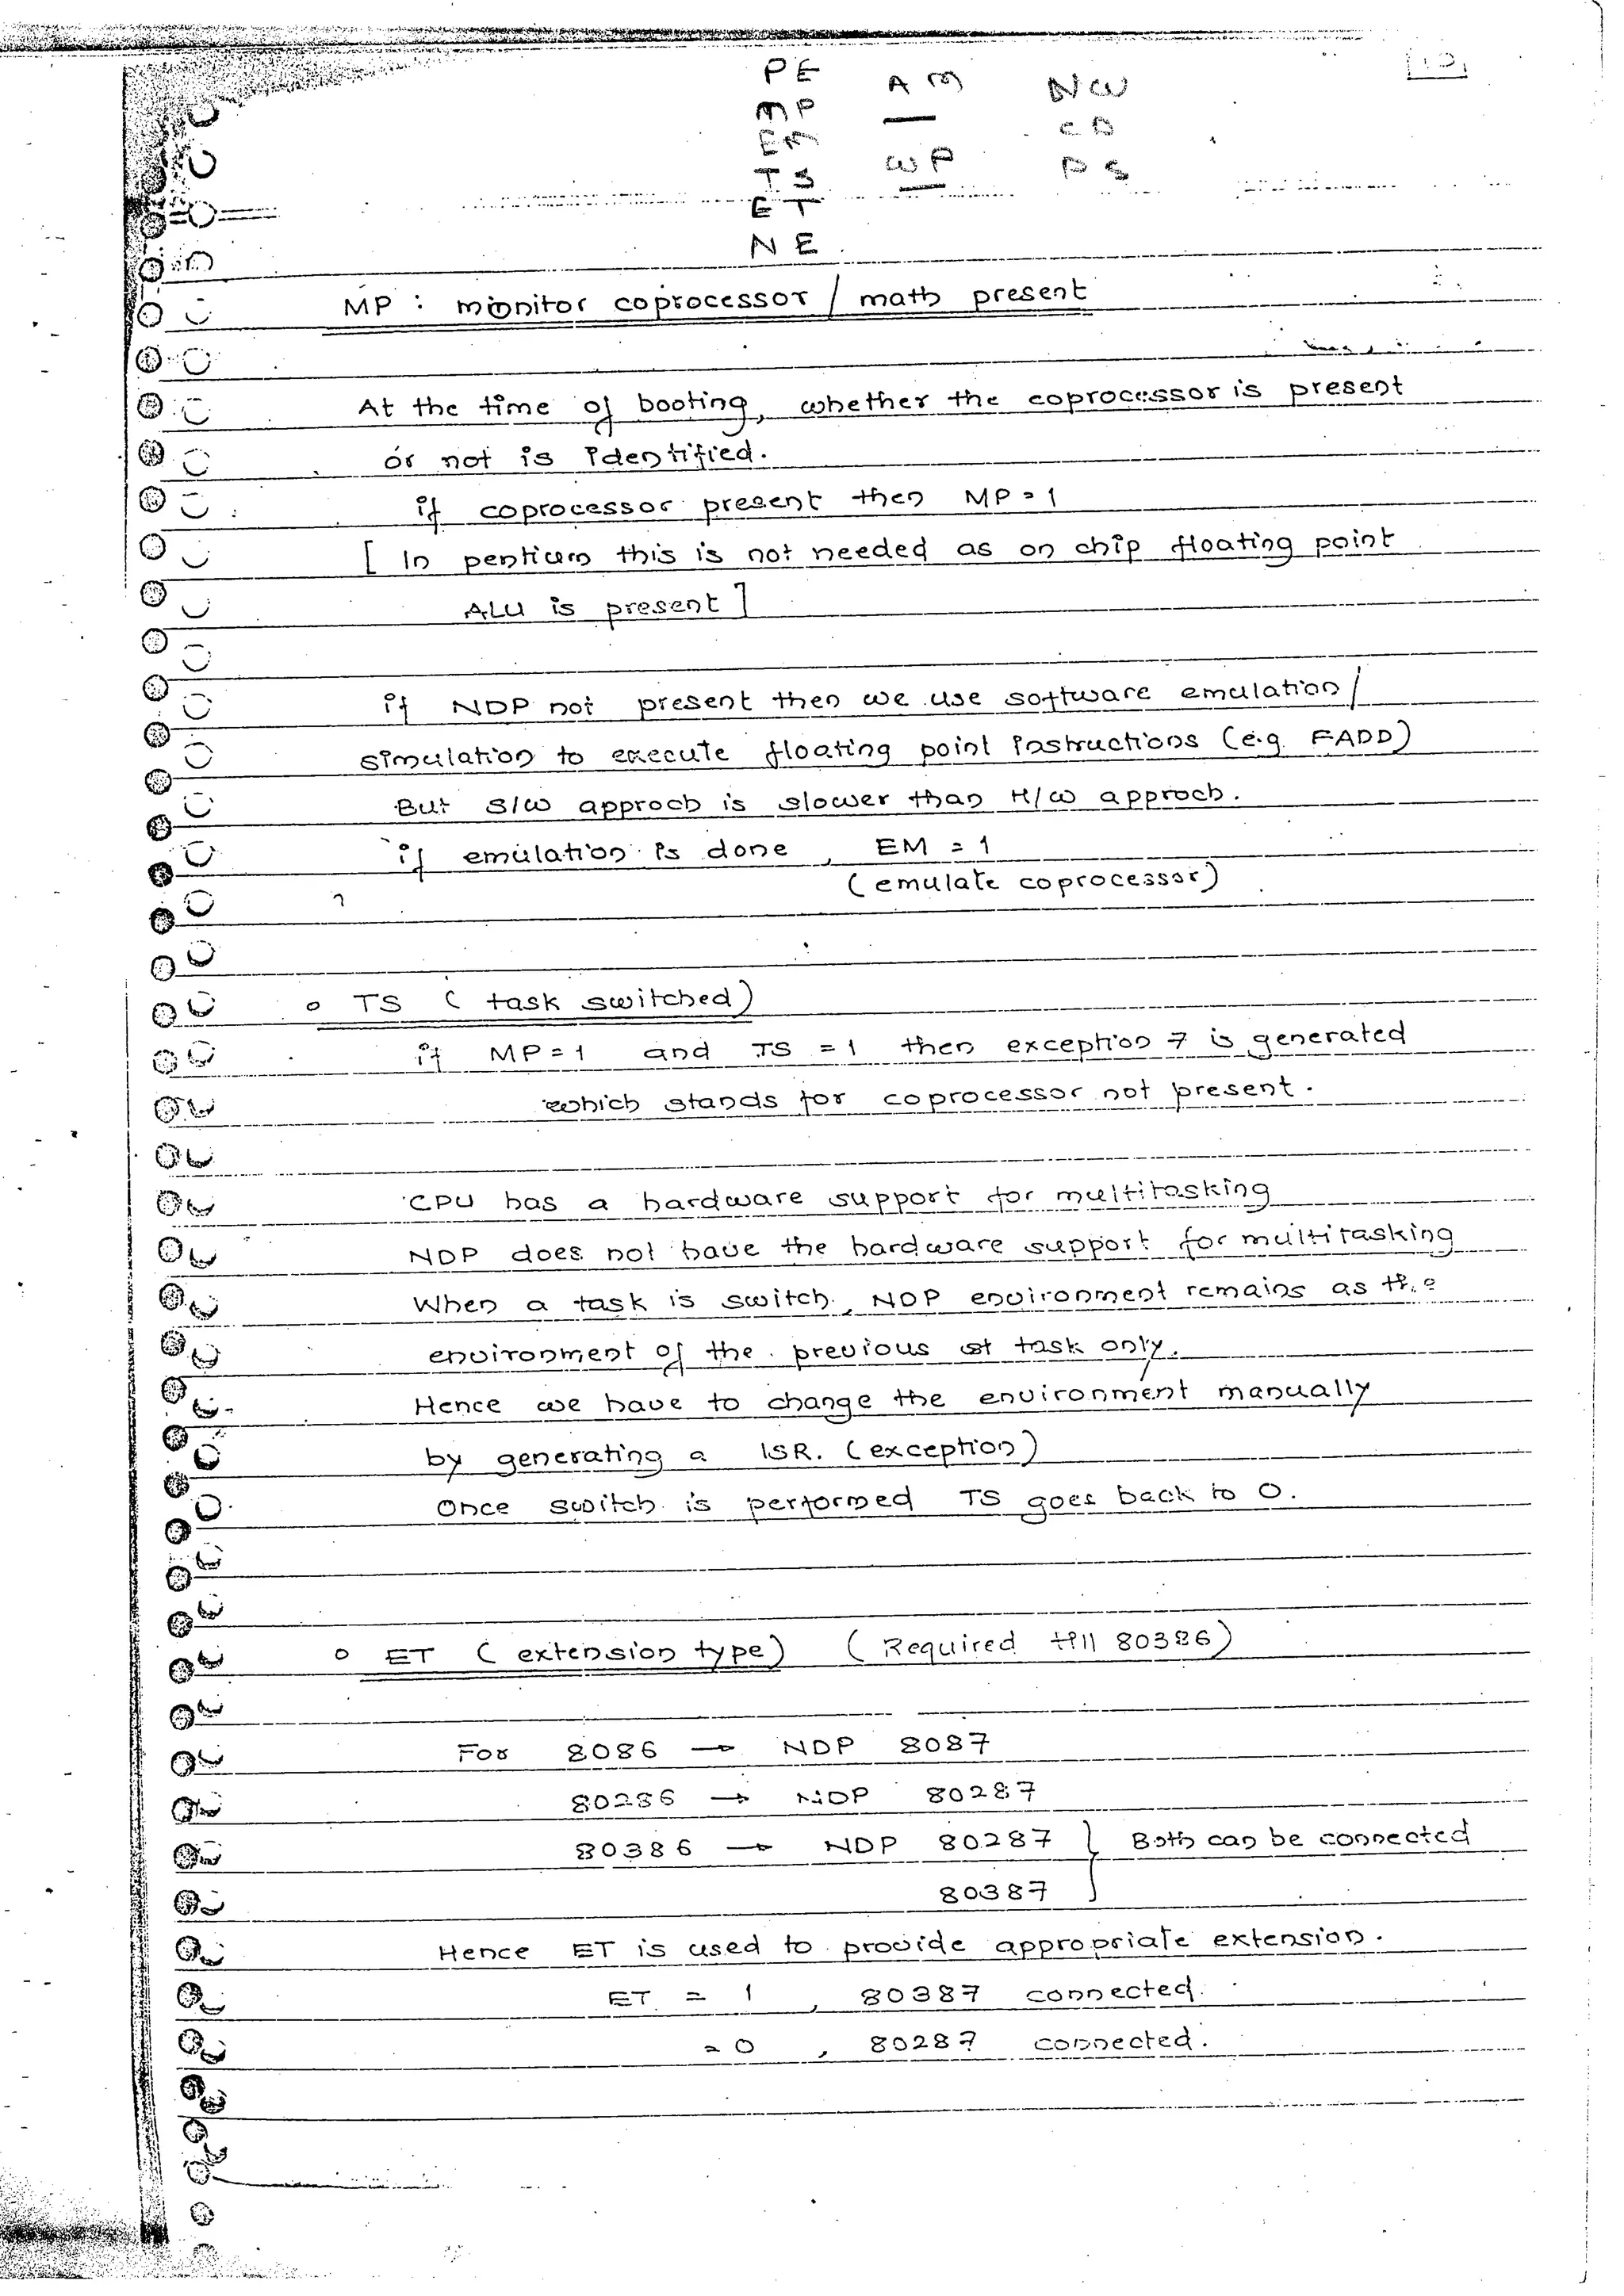 PE AM NW
MP
EM CD
TS WP PS
ET
NE
MP : monitor coprocessor / math present
At the time of booting, whether the coprocessor is present
or not is identified.
if coprocessor present then MP = 1
[ In pentium this is not needed as on chip floating point
ALU is present ]
if NDP not present then we use software emulation /
simulation to execute floating point instructions (e.g. FADD)
But s/w approch is slower than H/w approch.
if emulation is done , EM = 1
( emulate coprocessor )
o TS ( task switched )
if MP = 1 and TS = 1 then exception 7 is generated
which stands for coprocessor not present.
CPU has a hardware support for multitasking
NDP does not have the hardware support for multitasking
When a task is switch, NDP environment remains as the
environment of the previous st task only.
Hence we have to change the environment manually
by generating a ISR. ( exception )
Once switch is performed TS goes back to 0.
o ET ( extension type ) ( Required till 80386 )
For 8086 → NDP 8087
80286 → NDP 80287
80386 → NDP 80287 } Both can be connected
80387
Hence ET is used to provide appropriate extension.
ET = 1 , 80387 connected.
= 0 , 80287 connected.